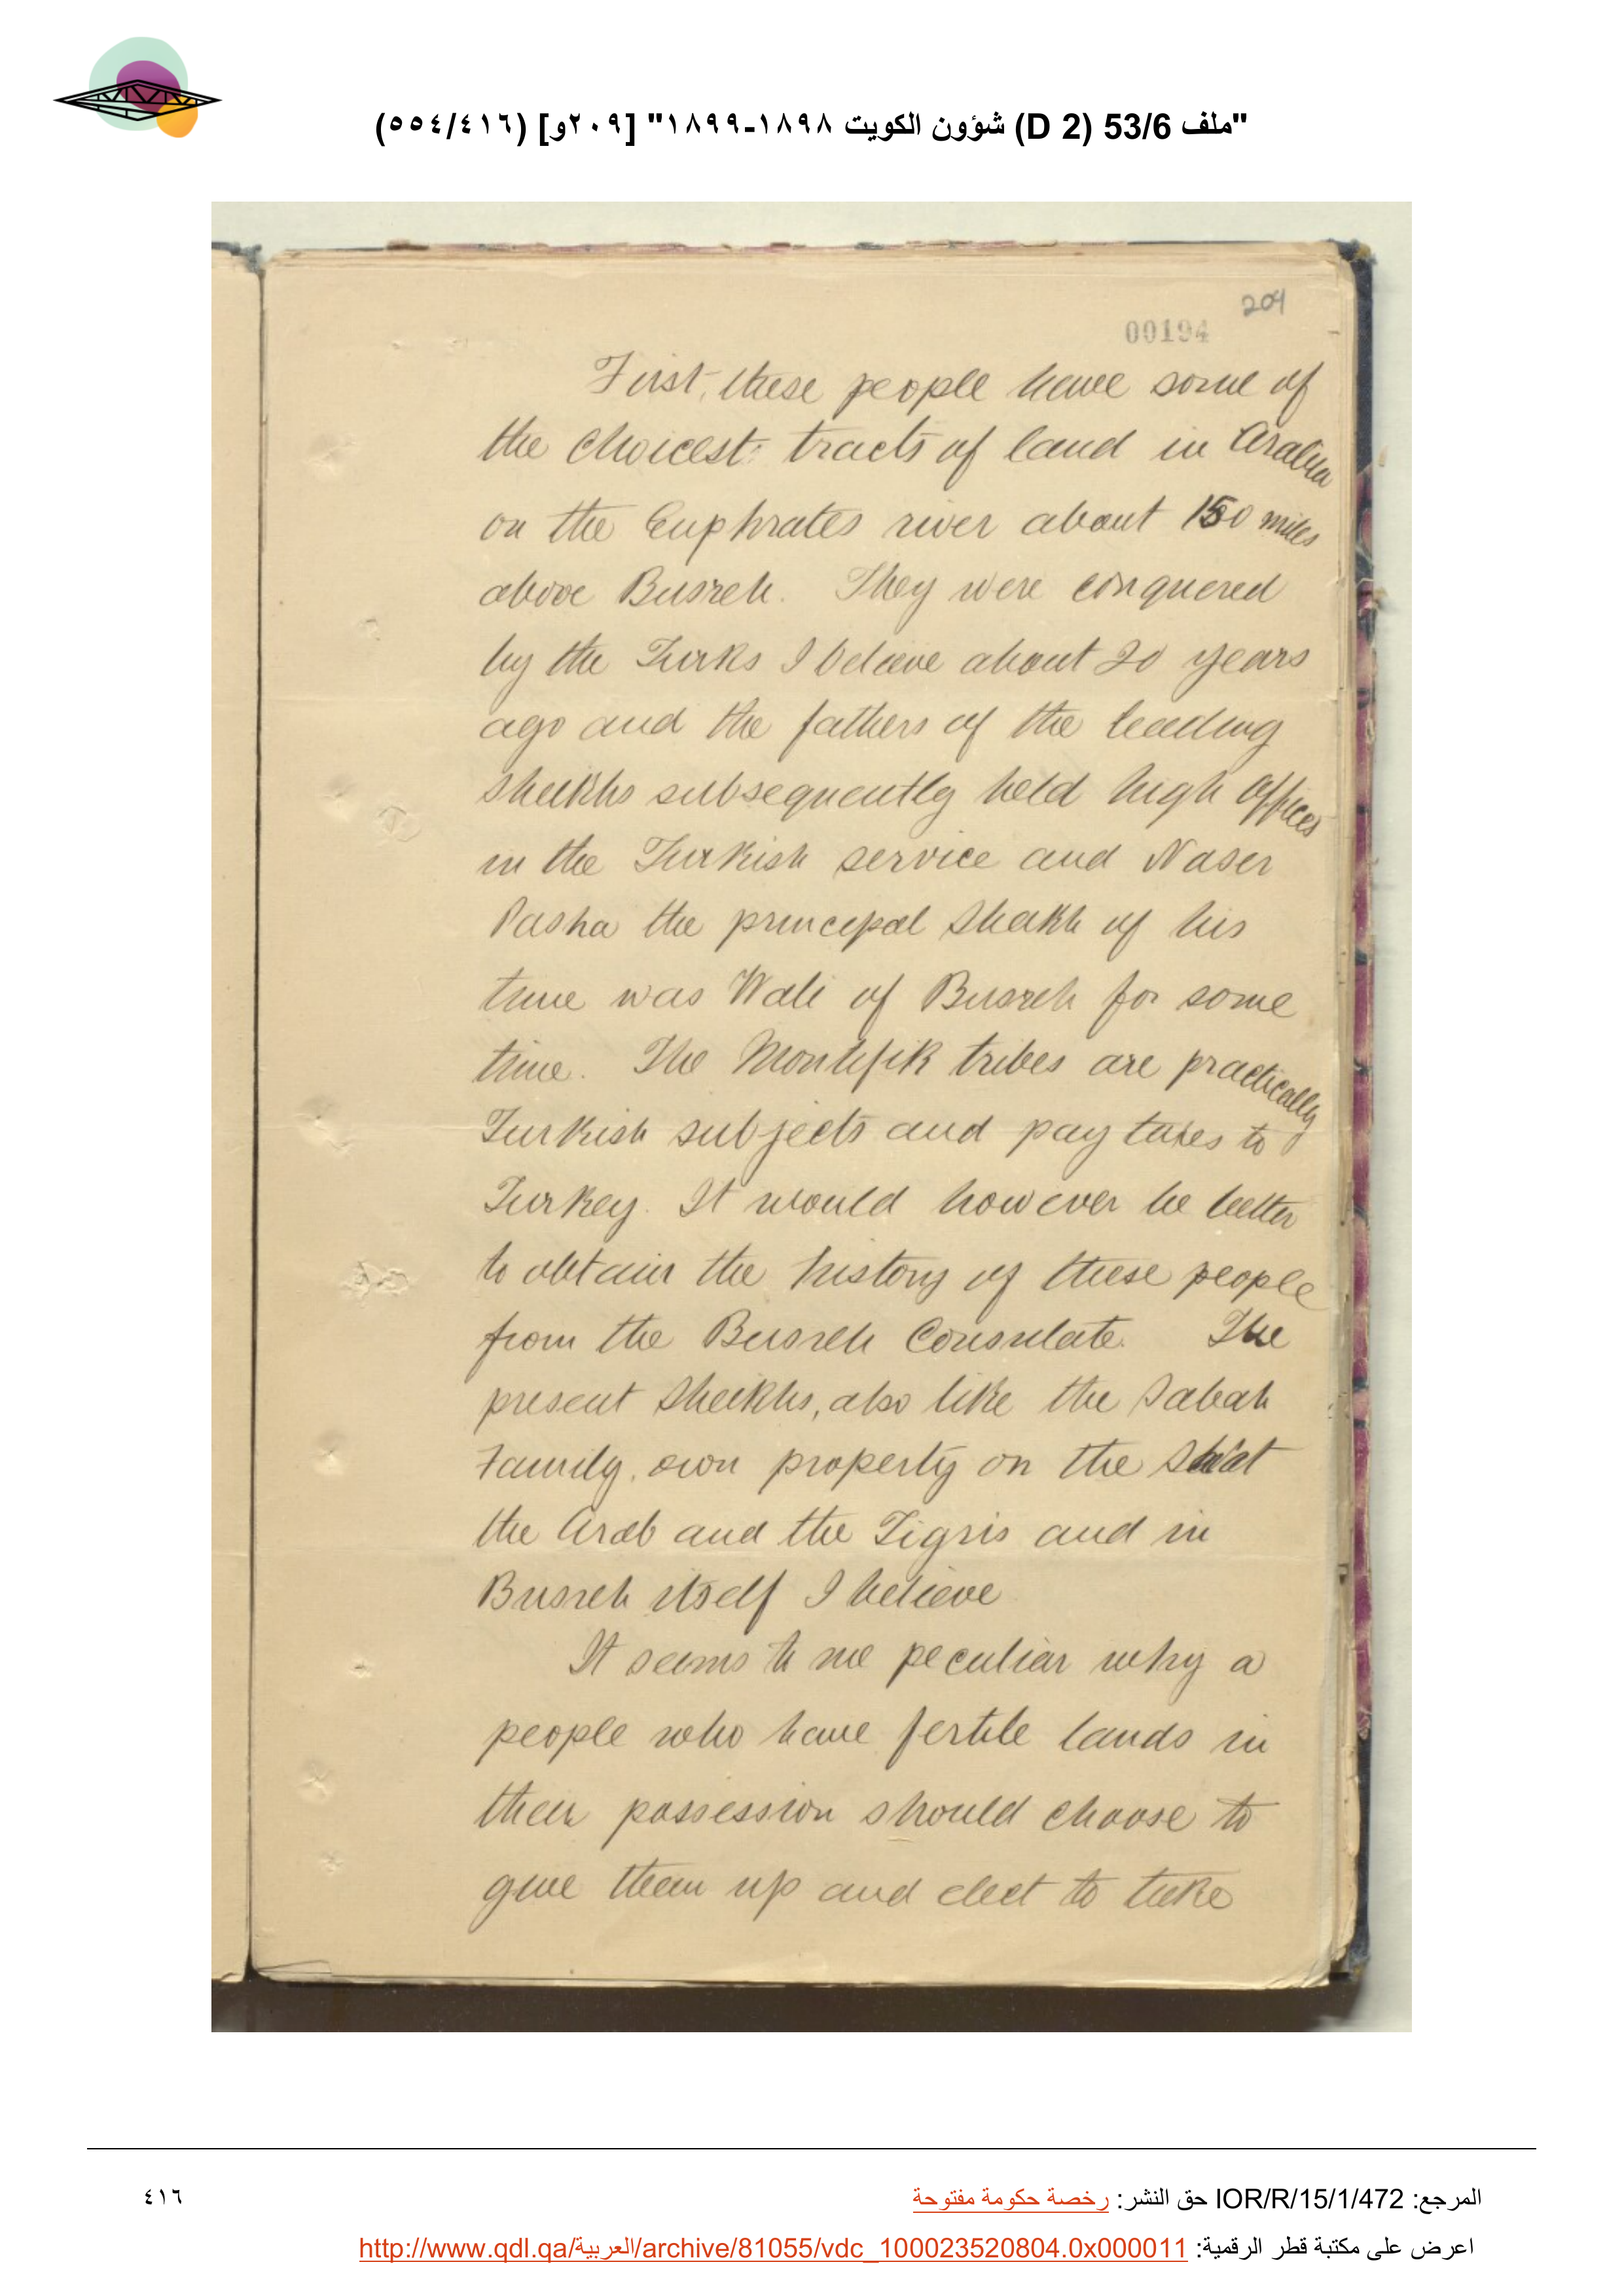 "ملف 53/6 (D 2) شؤون الكويت ١٨٩٨-١٨٩٩" [٢٠٩و] (٥٥٤/٤١٦)
209
00194
First, these people have some of
the choicest tracts of land in Arabia
on the Euphrates river about 150 miles
above Busreh. They were conquered
by the Turks I believe about 20 years
ago and the fathers of the leading
Sheikhs subsequently held high offices
in the Turkish service and Naser
Pasha the principal Sheikh of his
time was Wali of Busreh for some
time. The Montefik tribes are practically
Turkish subjects and pay taxes to
Turkey. It would however be better
to obtain the history of these people
from the Busreh Consulate. The
present Sheikhs, also like the Sabah
Family, own property on the Shat
the Arab and the Tigris and in
Busreh itself I believe
It seems to me peculiar why a
people who have fertile lands in
their possession should choose to
give them up and elect to take
المرجع: IOR/R/15/1/472 حق النشر: رخصة حكومة مفتوحة
٤١٦
اعرض على مكتبة قطر الرقمية: http://www.qdl.qa/العربية/archive/81055/vdc_100023520804.0x000011